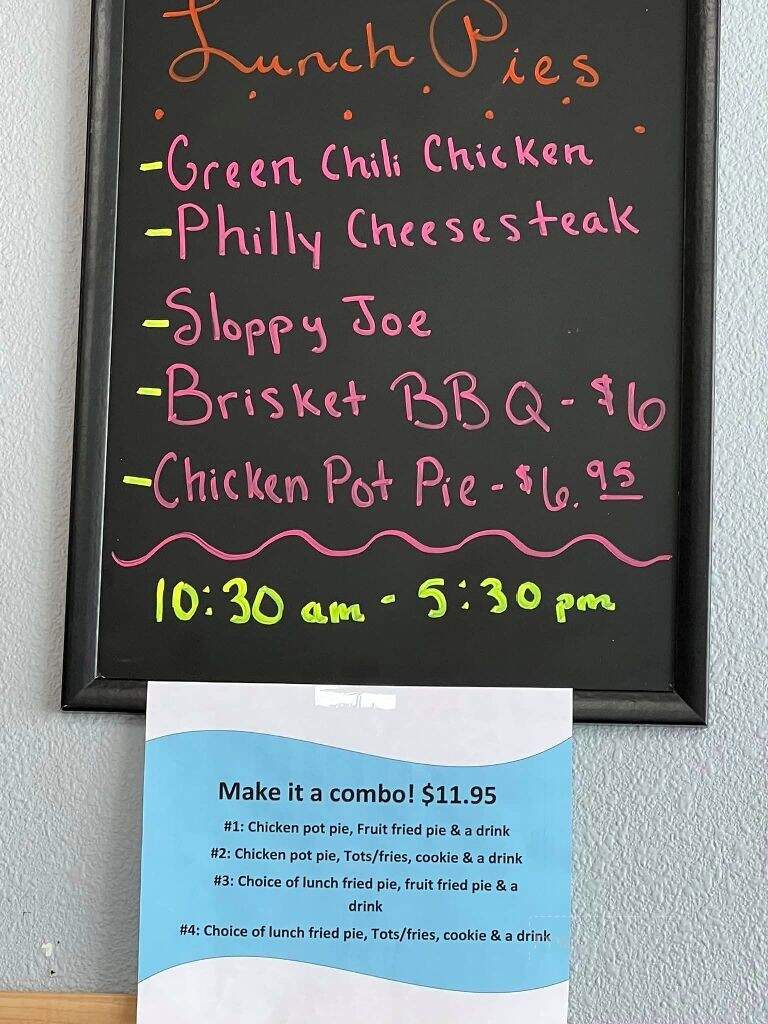 Lunch Pies
-Green Chili Chicken
-Philly Cheesesteak
-Sloppy Joe
-Brisket BBQ - $6
-Chicken Pot Pie - $6.95
10:30 am - 5:30 pm
Make it a combo! $11.95
#1: Chicken pot pie, Fruit fried pie & a drink
#2: Chicken pot pie, Tots/fries, cookie & a drink
#3: Choice of lunch fried pie, fruit fried pie & a
drink
#4: Choice of lunch fried pie, Tots/fries, cookie & a drink